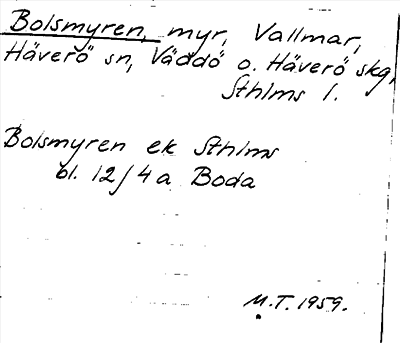 Bolsmyren, myr, Vallmar,
Häverö sn, Väddö o. Häverö skg,
Sthlms l.
Bolsmyren ek Sthlms
bl. 12/4a Boda
M.T. 1959.